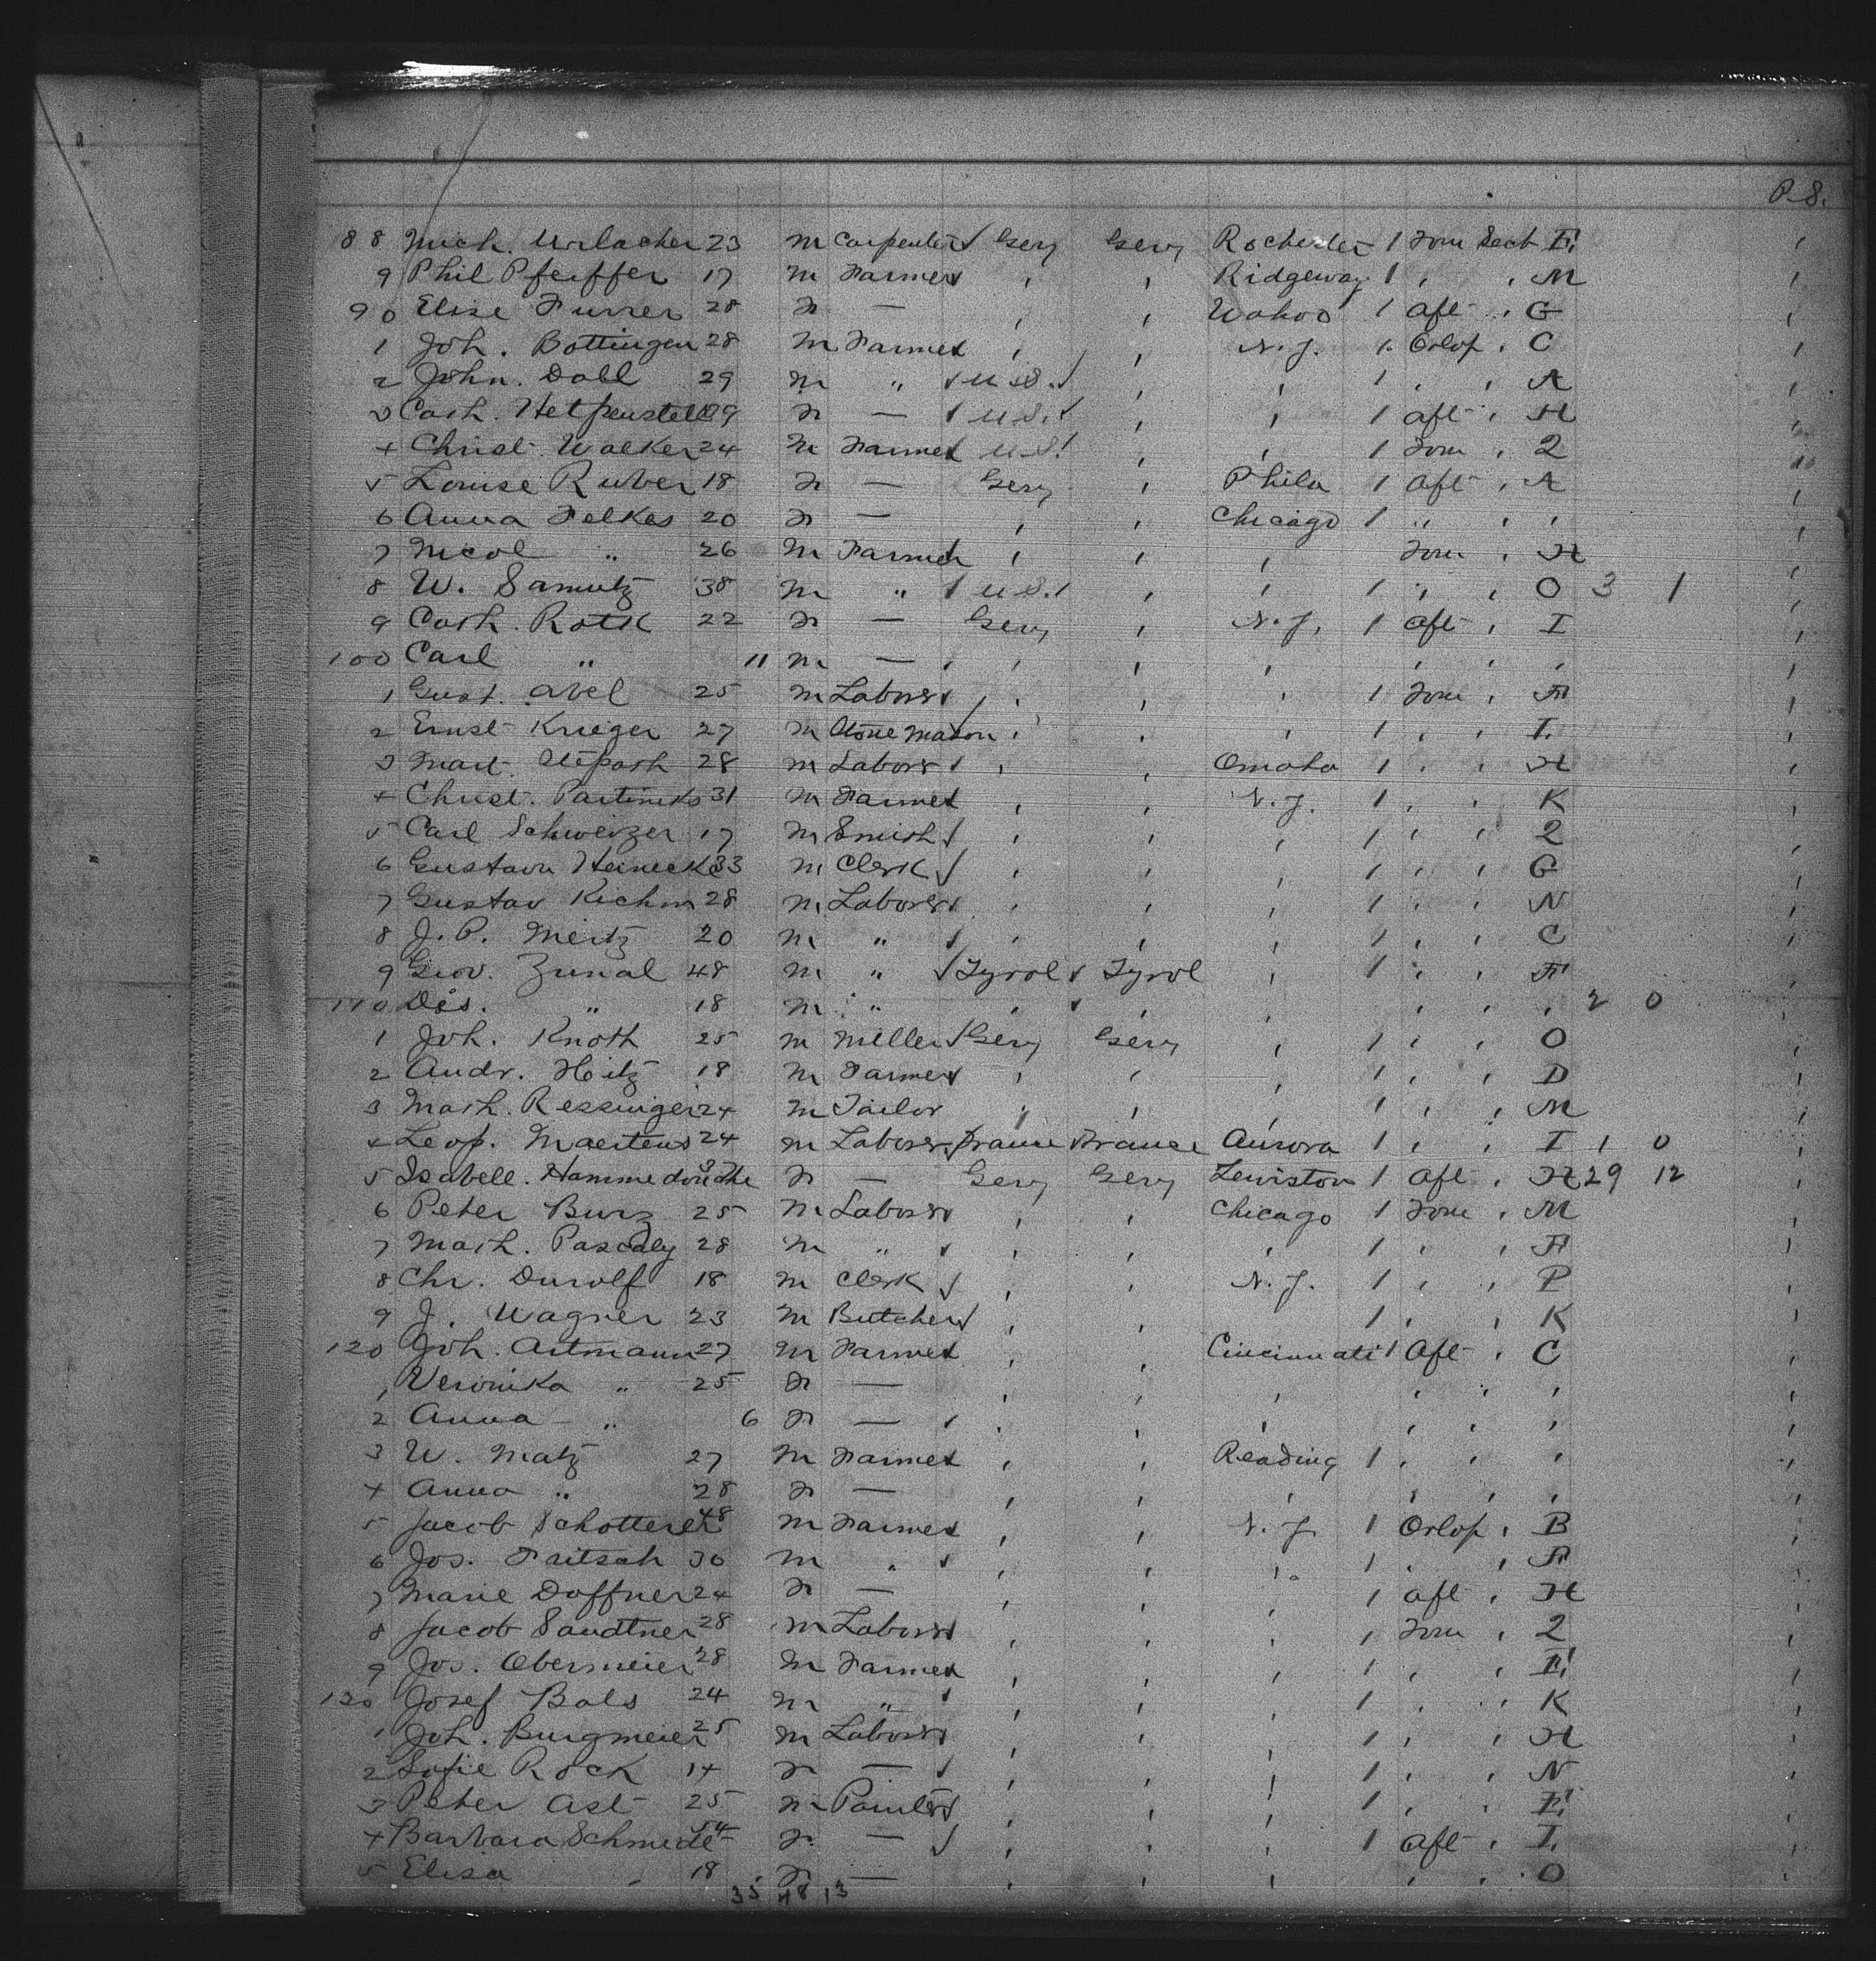 P. 8.
88 Mich. Urlacher 23 m Carpenter Gery Gery Rochester 1 Forw Sect E
9 Phil Pfeiffer 17 m Farmer , , Ridgeway 1 , , M
90 Elise Furrer 28 F — , , Wahoo 1 Aft , G
1 Joh. Bottingen 28 m Farmer , , N.J. 1 Orlop , C
2 John. Doll 29 m " U.S. , , 1 , , A
3 Cath. 29 F — U.S. , , 1 Aft , H
4 Christ. Walker 24 m Farmer U.S. , , 1 Forw , 2
5 Louise Ruber 18 F — Gery , Phila 1 Aft , A
6 Anna Felkes 20 F — , , Chicago 1 " , ,
7 Nicol " 26 m Farmer , , , Forw , H
8 W. Samutz 38 m " U.S. , , 1 , , O 3 1
9 Cath. Roth 22 F — Gery , N.J. 1 Aft , I
100 Carl " 11 m — , , , , , ,
1 Gust. Abel 25 m Laborer , , , 1 Forw , F
2 Ernst Krieger 27 m Stone Mason , , , 1 , , I
3 Mart. 28 m Laborer , , Omaha 1 , , H
4 Christ. 31 m Farmer , , N.J. 1 , , K
5 Carl Schweizer 17 m Smith , , , 1 , , 2
6 Gustav Heinecke 33 m Clerk , , , 1 , , G
7 Gustav Kichm 28 m Laborer , , , 1 , , N
8 J.P. Mertz 20 m " , , , 1 , , C
9 Giov. Zunal 48 m " Tyrol Tyrol , 1 , , F
110 Dis. " 18 m " , , , , , , 2 0
1 Joh. Knoth 25 m Miller Gery Gery , 1 , , O
2 Andr. Hoitz 18 m Farmer , , , 1 , , D
3 Math. Ressinger 24 m Tailor , , , 1 , , M
4 Leop. Maertens 24 m Laborer France France Aurora 1 , , I 1 0
5 Isabell. F — Gery Gery Lewiston 1 Aft , H 29 12
6 Peter Burz 25 m Laborer , , Chicago 1 Forw , M
7 Math. Pascaly 28 m " , , , 1 , , F
8 Chr. Durolf 18 m Clerk , , N.J. 1 , , P
9 J. Wagner 23 m Butcher , , 1 , , K
120 Joh. Artmann 27 m Farmer , , Cincinnati 1 Aft , C
1 Veronika " 25 F — , , , , , ,
2 Anna " 6 F — , , , , , ,
3 W. Matz 27 m Farmer , , Reading 1 , , ,
4 Anna " 28 F — , , , , , ,
5 Jacob Schotterer 48 m Farmer , , N.J. 1 Orlop , B
6 Jos. Fritsch 30 m " , , , 1 , , F
7 Marie Doffner 24 F — , , , 1 Aft , H
8 Jacob Sandtner 28 m Laborer , , , 1 Forw , 2
9 Jos. Obermeier 28 m Farmer , , , 1 , , E
130 Josef Bals 24 m " , , , 1 , , K
1 Joh. Burgmeier 25 m Laborer , , , 1 , , H
2 Sofie Rock 14 F — , , , 1 , , N
3 Peter Ast 25 m Painter , , , 1 , , E
4 Barbara Schmidt 54 F — , , , 1 Aft , I
5 Elisa , 18 F — , , , , , O
35 48 13